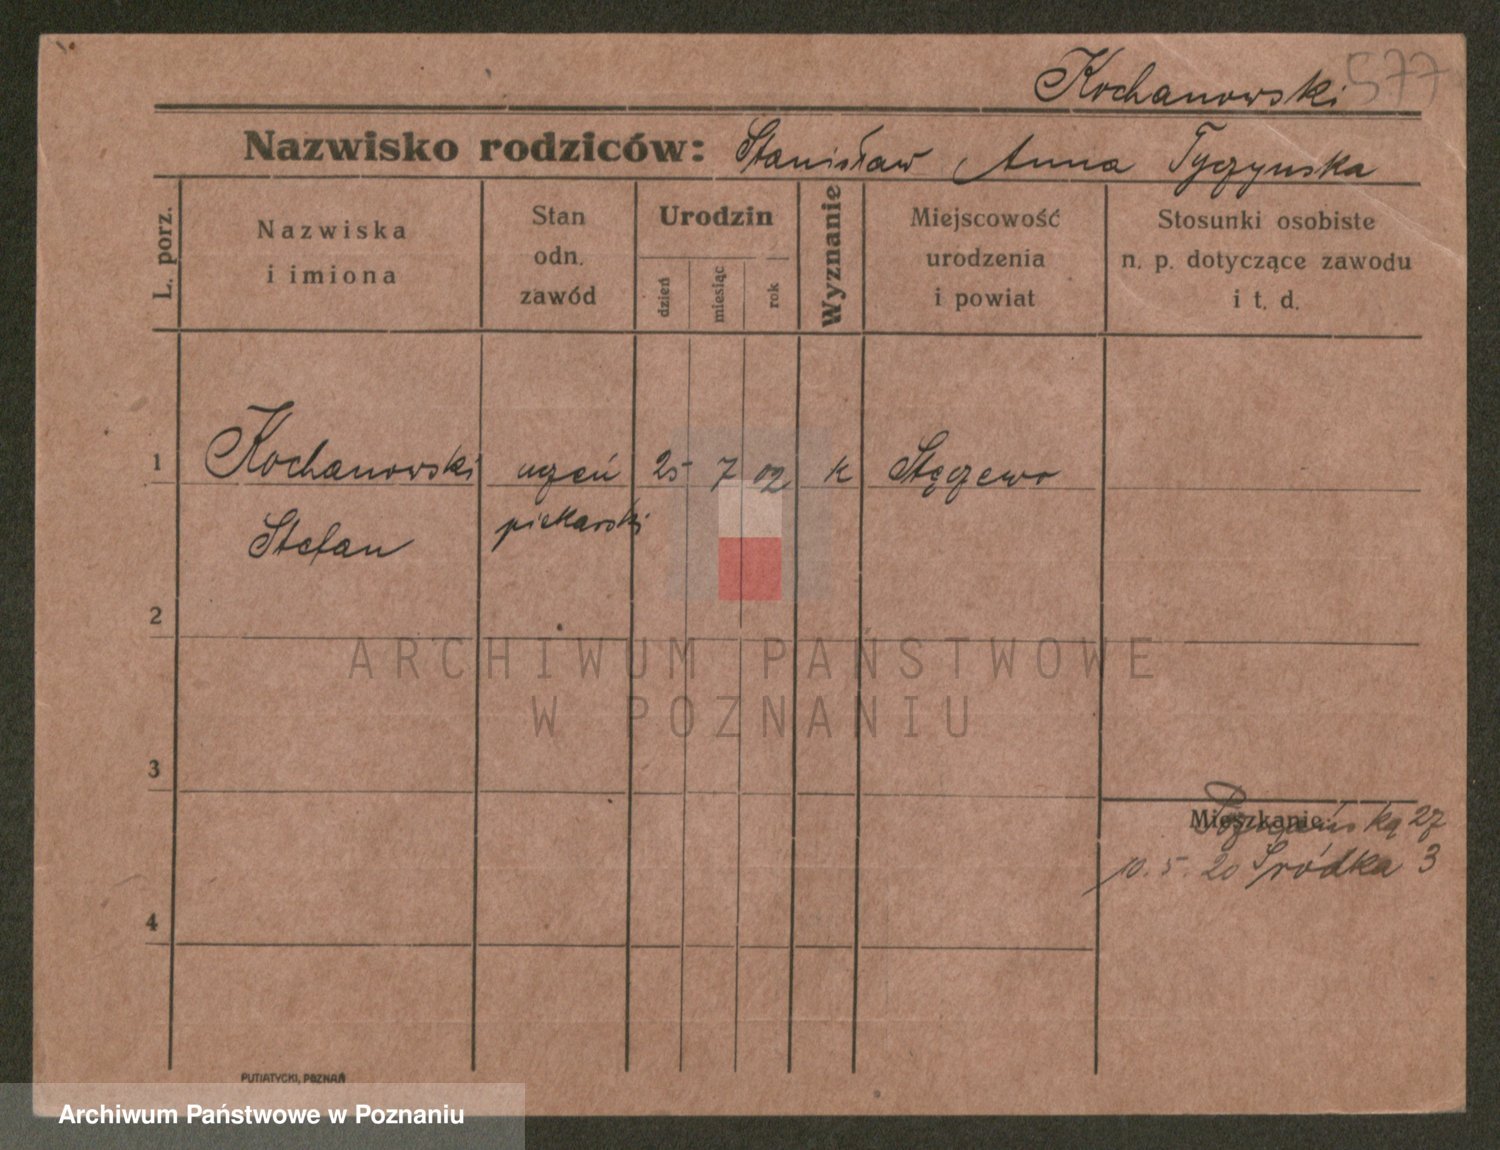 Kochanowski 577
Nazwisko rodziców: Stanisław Anna Tyczynska
L. porz.
Nazwiska
i imiona
Stan
odn.
zawód
Urodzin
dzień
miesiąc
rok
Wyznanie
Miejscowość
urodzenia
i powiat
Stosunki osobiste
n. p. dotyczące zawodu
i t. d.
1 Kochanowski uczeń 25 7 02 k Stęczewo
Stefan piekarski
2
ARCHIWUM PAŃSTWOWE
W POZNANIU
3
Mieszkanie: 27
10. 5. 20 Śródka 3
4
PUTIATYCKI, POZNAŃ
Archiwum Państwowe w Poznaniu